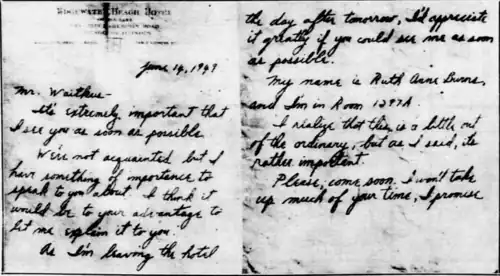 EDGEWATER BEACH HOTEL
June 14, 1949
Mr. Waitkus-
It's extremely important that
I see you as soon as possible.
We're not acquainted but I
have something of importance to
speak to you about. I think it
would be to your advantage to
let me explain it to you.
As I'm leaving the hotel
the day after tomorrow, I'd appreciate
it greatly if you could see me as soon
as possible.
My name is Ruth Anne Burns,
and I'm in Room 1297A.
I realize that this is a little out
of the ordinary, but as I said, its
rather important.
Please, come soon. I won't take
up much of your time, I promise